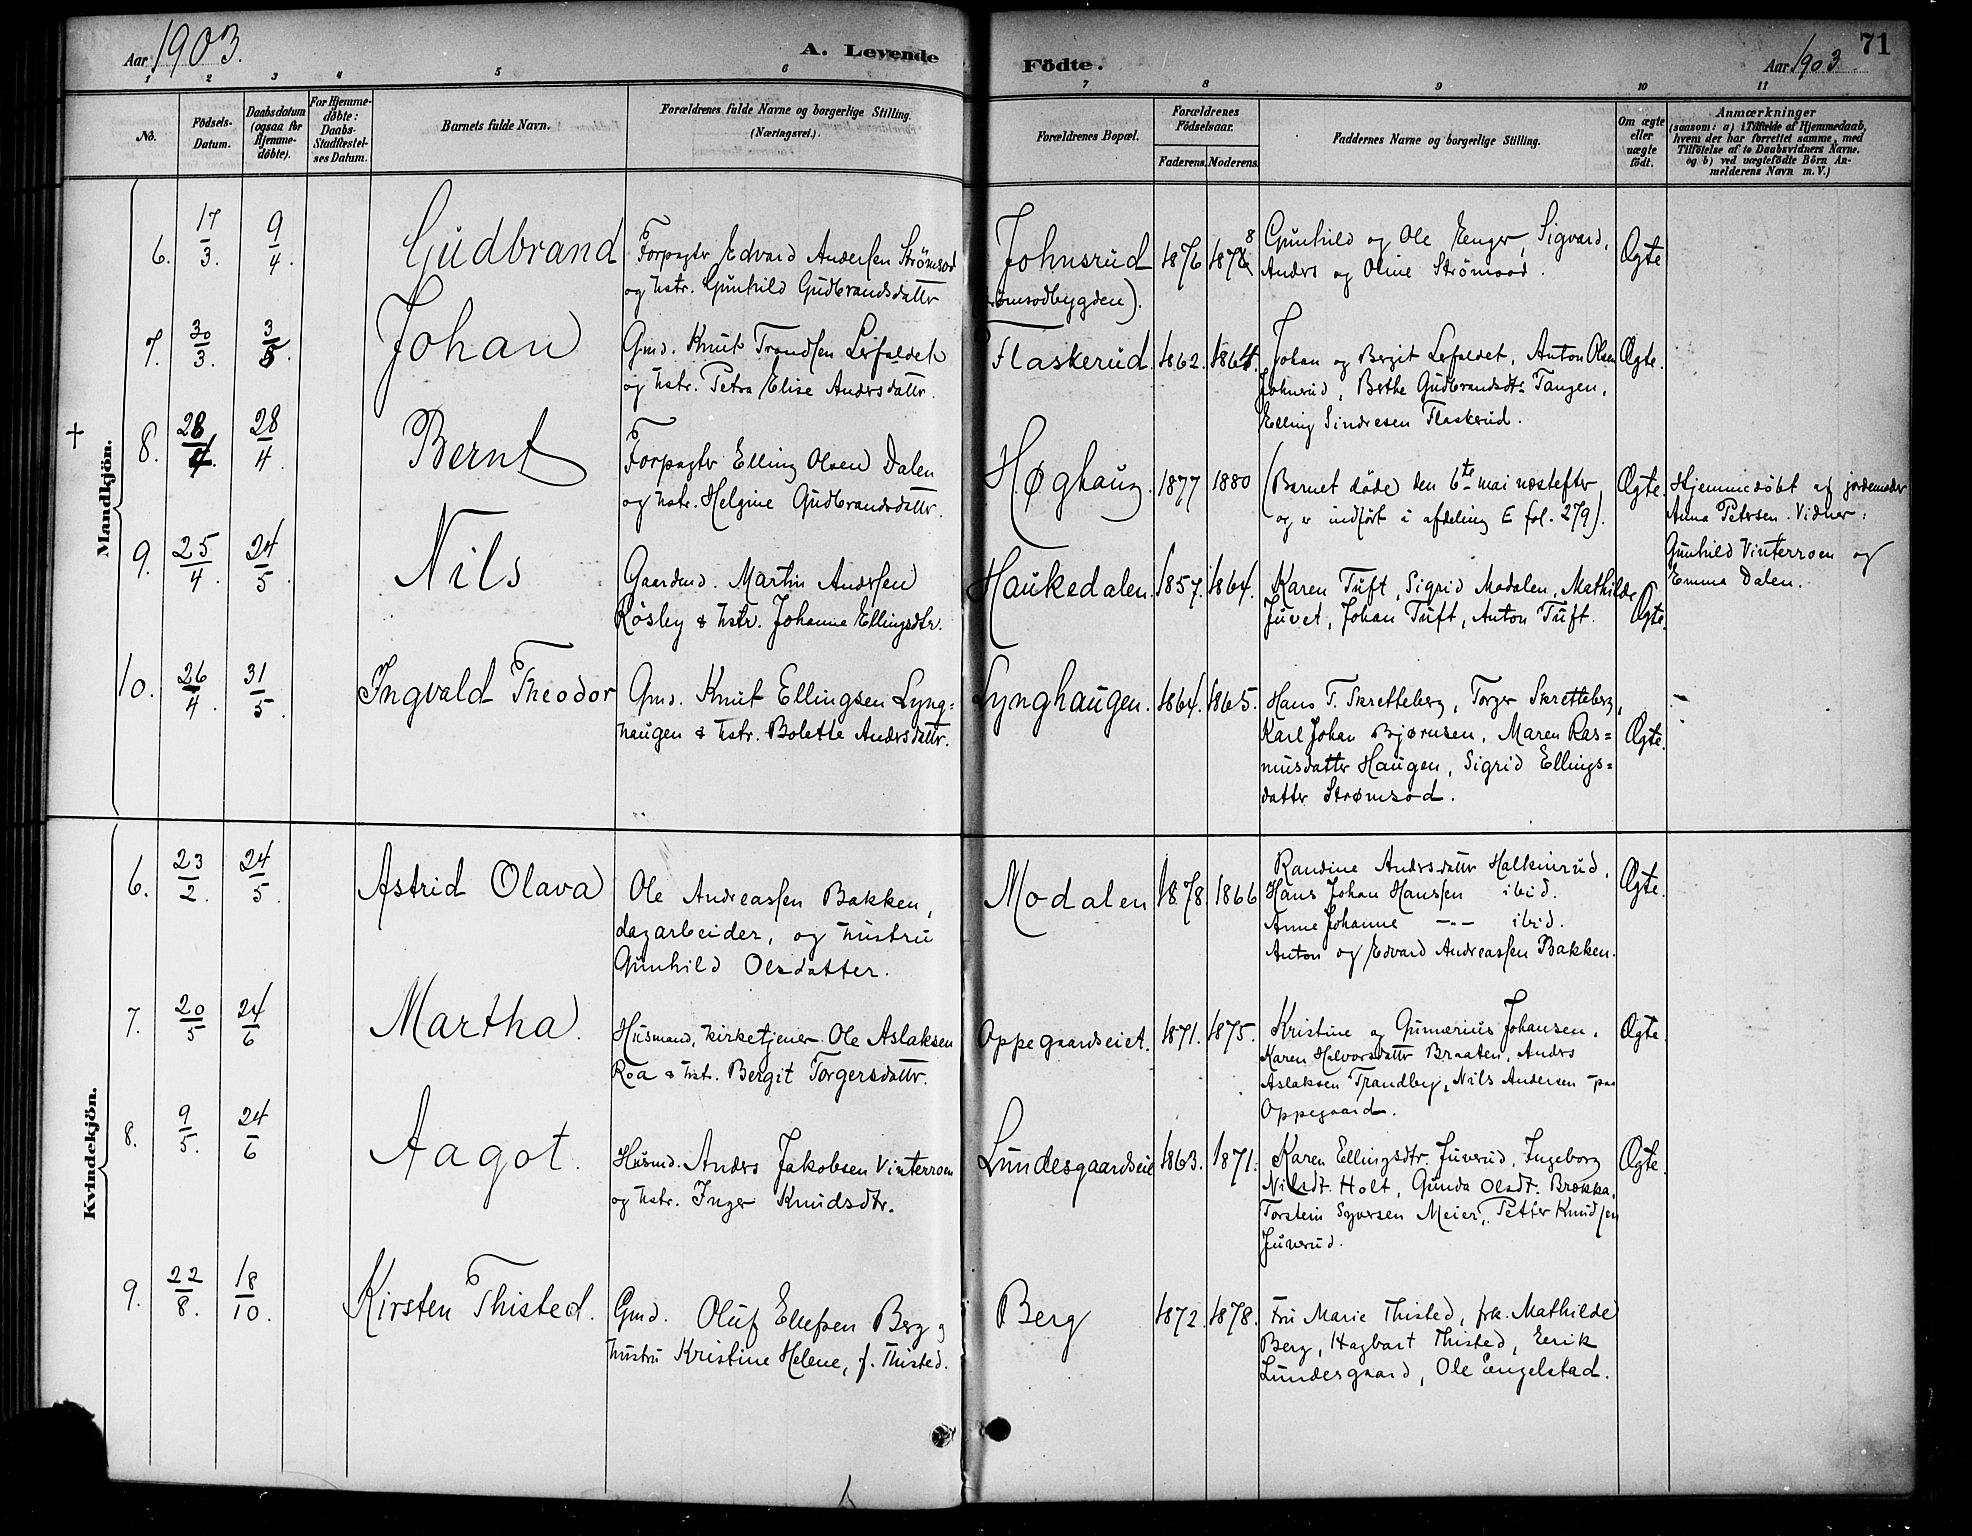 Aar 1903.
A. Levende
Födte.
Aar 1903
71
1 2 3 4 5 6 7 8 9 10 11
No.
Födsels-
Datum.
Daabsdatum
(ogsaa for
Hjemme-
döbte).
For Hjemme-
döbte:
Daabs-
Stadfæstel-
ses Datum.
Barnets fulde Navn.
Forældrenes fulde Navne og borgerlige Stilling.
(Næringsvei.)
Forældrenes Bopæl.
Forældrenes
Födselsaar.
Faderens. Moderens.
Faddernes Navne og borgerlige Stilling.
Om ægte
eller
uægte
födt.
Anmærkninger
(saasom: a) i Tilfælde af Hjemmedaab,
hvem der har forrettet samme, med
Tilföielse af to Daabsvidners Navne,
og b) ved uægtefödte Börn An-
melderens Navn m. V.)
Mandkjön.
6. 17/3. 9/4. Gudbrand
Forpagter Edvard Andersen Strömsod
og hstr. Gunhild Gudbrandsdattr
Johnsrud
(Strömsodbygden).
1876 1878
Gunhild og Ole Enger, Sigvard,
Anders og Oline Strömsod.
Ægte
7. 30/3. 3/5. Johan
Gmd. Knut Trondsen Lerfaldet
og hstr. Petra Elise Andersdattr.
Flaskerud. 1862. 1864.
Johan og Bergit Lerfaldet, Anton Olsen
Johnsrud, Berthe Gudbrandsdtr Tangen,
Elling Sindresen Flaskerud.
Ægte.
† 8. 28/4. 28/4. Bernt
Forpagter Elling Olsen Dalen
og hstr. Helgine Gudbrandsdattr.
Høghaug. 1877 1880
(Barnet døde den 6te mai næstefter,
og er indført i afdeling E fol. 279).
Ægte.
Hjemmedøbt af jordemoder
Anna Petersen. Vidner:
Gunhild Vinterroen og
Emma Dalen.
9. 25/4 24/5. Nils
Gaardmd. Martin Andersen
Rösley & hstr. Johanne Ellingsdtr.
Haukedalen. 1857. 1864.
Karen Tuft, Sigrid Modalen, Mathilde
Juvet, Johan Tuft, Anton Tuft.
Ægte.
10. 26/4 31/5. Ingvald Theodor
Gmd. Knut Ellingsen Lyng=
haugen & hstr. Bolette Andersdattr.
Lynghaugen. 1864. 1865.
Hans T. Skretteberg, Torger Skretteberg,
Karl Johan Bjørnsen, Maren Ras=
musdatter Haugen, Sigrid Ellings=
datter Strømsod.
Ægte.
Kvindekjön.
6. 23/2. 24/5. Astrid Olava
Ole Andreassen Bakken,
dagarbeider, og hustru
Gunhild Olsdatter.
Modalen 1878. 1866
Randine Andersdattr Halkinrud.
Hans Johan Hanssen ibid.
Anne Johanne -"- ibid.
Anton og Edvard Andreassen Bakken.
Ægte.
7. 20/5 24/6 Martha.
Husmand, kirketjener Ole Aslaksen
Roa & hstr. Bergit Torgersdattr.
Oppegaardseiet. 1871. 1875.
Kristine og Gunerius Johansen,
Karen Halvorsdattr Braaten, Anders
Aslaksen Trandby, Nils Andersen paa
Oppegaard.
Ægte.
8. 9/5. 24/6 Aagot.
Husmd. Anders Jakobsen Vinterroen
og hstr. Inger Knudsdtr.
Lundesgaardseie 1863. 1871.
Karen Ellingsdtr. Juverud, Ingeborg
Nilsdt. Holt, Gunda Olsdt. Brekka,
Torstein Syversen Meier, Petter Knudsen
Juverud.
Ægte.
9. 22/8. 18/10. Kirsten Thisted.
Gmd. Oluf Ellefsen Berg og
hustru Kristine Helene, f. Thisted.
Berg 1872. 1878.
Fru Marie Thisted, frk. Mathilde
Berg, Hagbart Thisted, Eerik
Lundesgaard, Ole Engelstad.